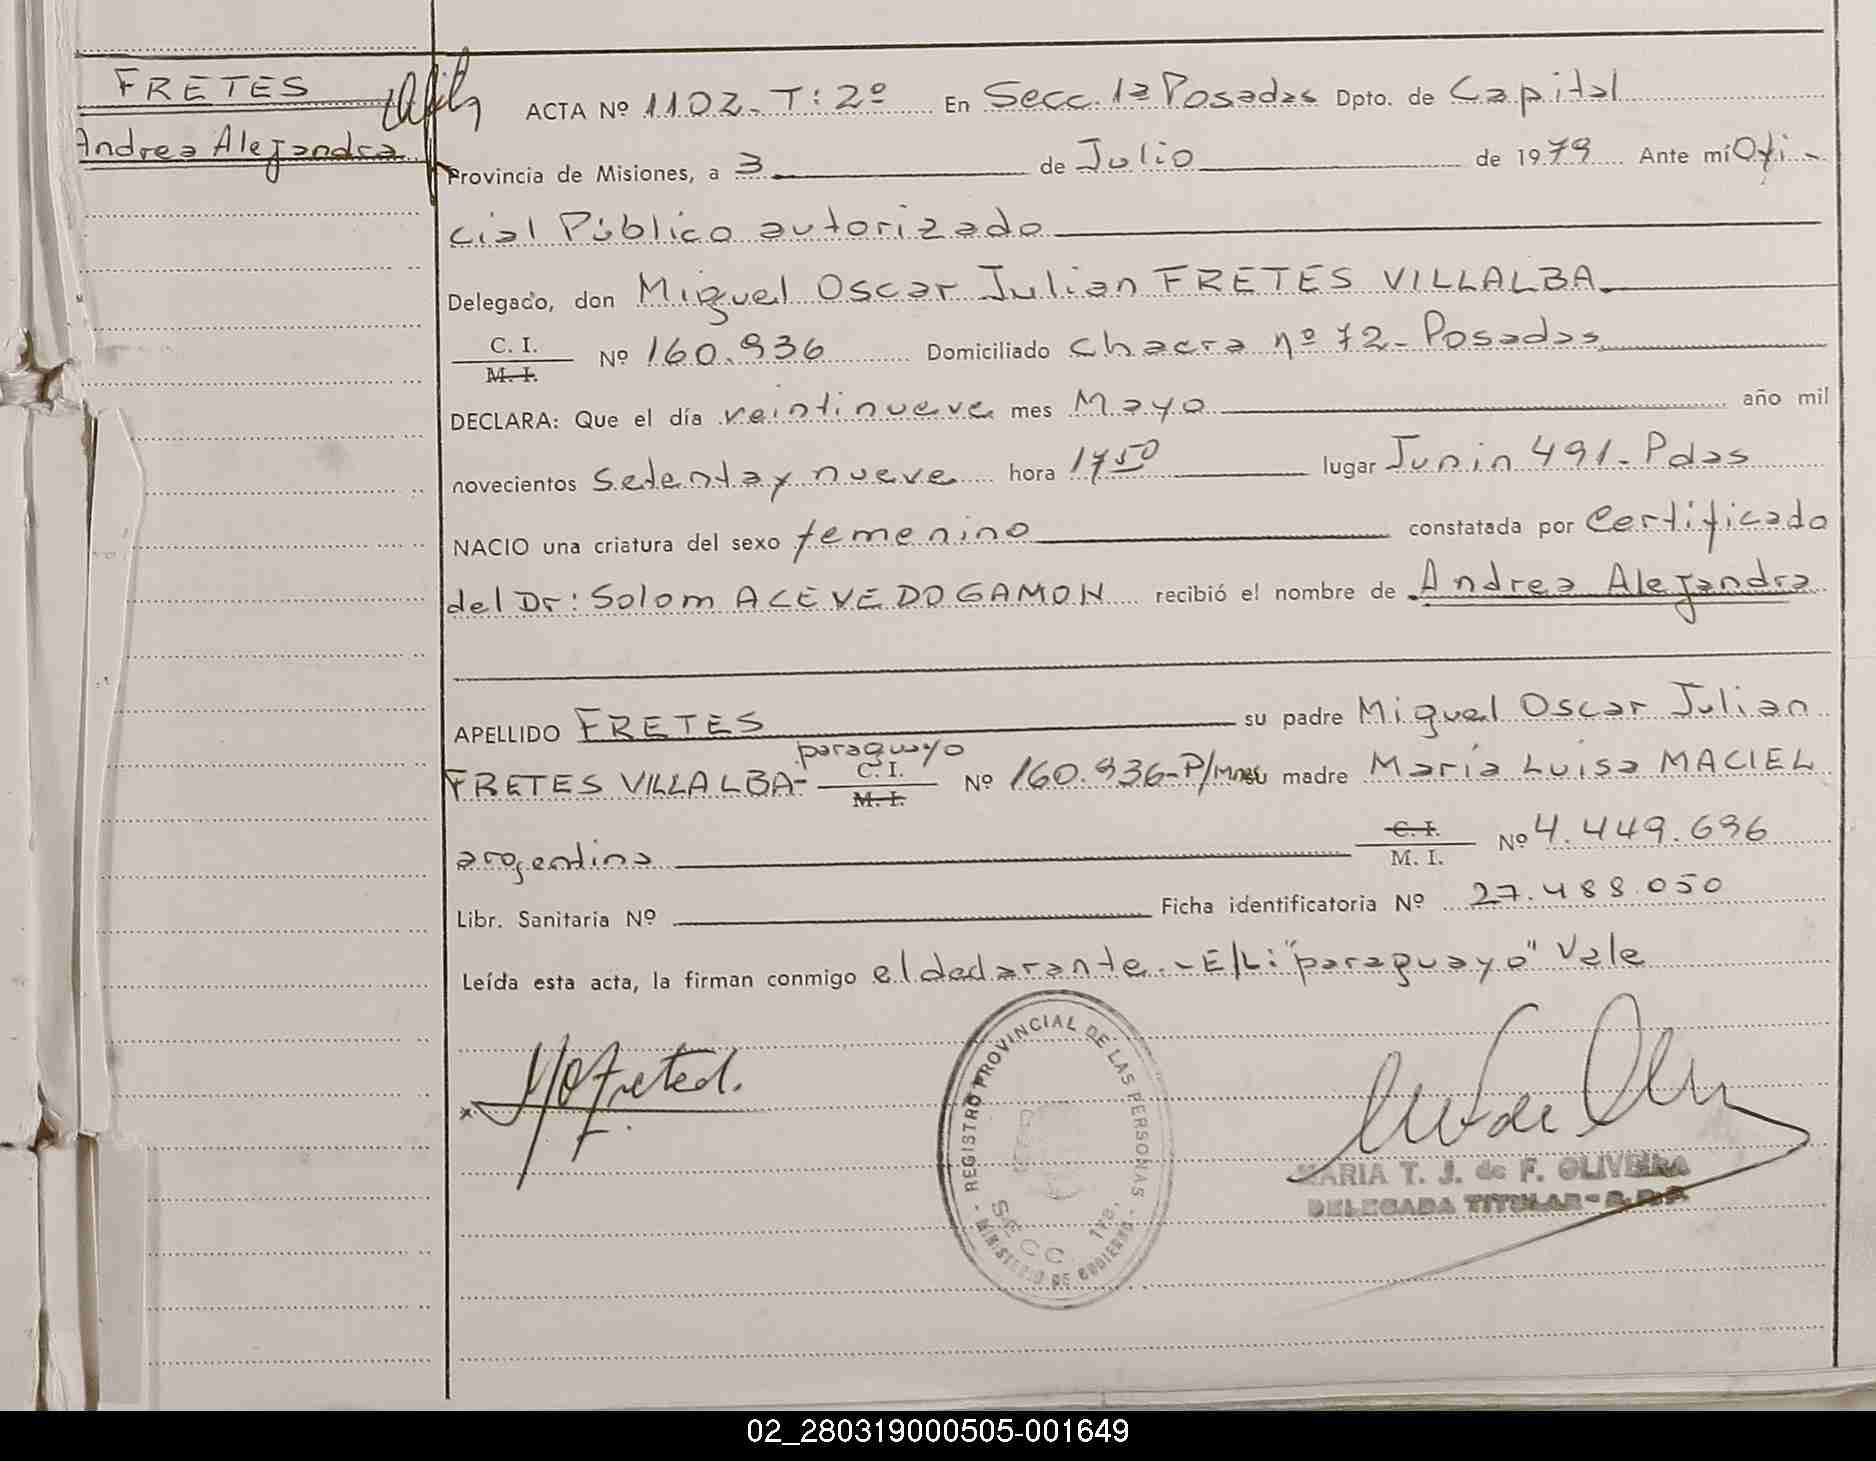 FRETES
Andrea Alejandra
ACTA Nº 1102-T:2º En Secc. 1a Posadas Dpto. de Capital
Provincia de Misiones, a 3 de Julio de 1979 Ante mí Ofi-
cial Público autorizado
Delegado, don Miguel Oscar Julian FRETES VILLALBA
C. I.
M. I. Nº 160.936 Domiciliado chacra nº 72-Posadas
DECLARA: Que el día veintinueve mes Mayo año mil
novecientos setenta y nueve hora 1750 lugar Junin 491-Pdas
NACIO una criatura del sexo femenino constatada por Certificado
del Dr: Solom ACEVEDO GAMON recibió el nombre de Andrea Alejandra
APELLIDO FRETES su padre Miguel Oscar Julian
paraguayo
FRETES VILLALBA- C. I. M. I. Nº 160.936-P/Mnes su madre María Luisa MACIEL
argentina C. I. M. I. Nº 4.449.696
Libr. Sanitaria Nº Ficha identificatoria Nº 27.488.050
Leída esta acta, la firman conmigo el declarante.-E/L: "paraguayo" Vale
REGISTRO PROVINCIAL DE LAS PERSONAS
SECC. 1ra.
- MINISTERIO DE GOBIERNO -
MARIA T. J. de F. OLIVEIRA
DELEGADA TITULAR
02_280319000505-001649